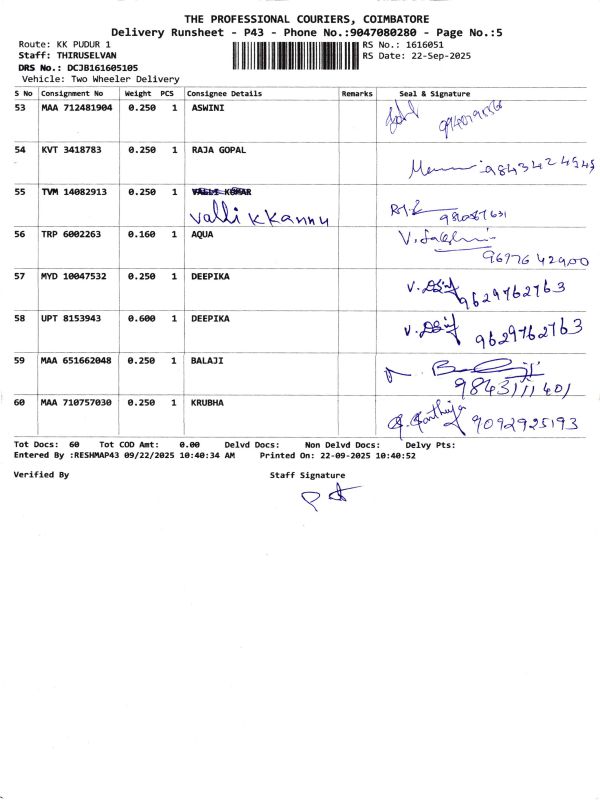 THE PROFESSIONAL COURIERS, COIMBATORE
Delivery Runsheet - P43 - Phone No.:9047080280 - Page No.:5
Route: KK PUDUR 1 RS No.: 1616051
Staff: THIRUSELVAN RS Date: 22-Sep-2025
DRS No.: DCJB161605105
Vehicle: Two Wheeler Delivery
S No Consignment No Weight PCS Consignee Details Remarks Seal & Signature
53 MAA 712481904 0.250 1 ASWINI
54 KVT 3418783 0.250 1 RAJA GOPAL
9843424949
55 TVM 14082913 0.250 1 VALLI KUMAR
Valli KKannu
56 TRP 6002263 0.160 1 AQUA
9677642900
57 MYD 10047532 0.250 1 DEEPIKA
9629762763
58 UPT 8153943 0.600 1 DEEPIKA
9629762763
59 MAA 651662048 0.250 1 BALAJI
9843111401
60 MAA 710757030 0.250 1 KRUBHA
9092925193
Tot Docs: 60 Tot COD Amt: 0.00 Delvd Docs: Non Delvd Docs: Delvy Pts:
Entered By :RESHMAP43 09/22/2025 10:40:34 AM Printed On: 22-09-2025 10:40:52
Verified By Staff Signature